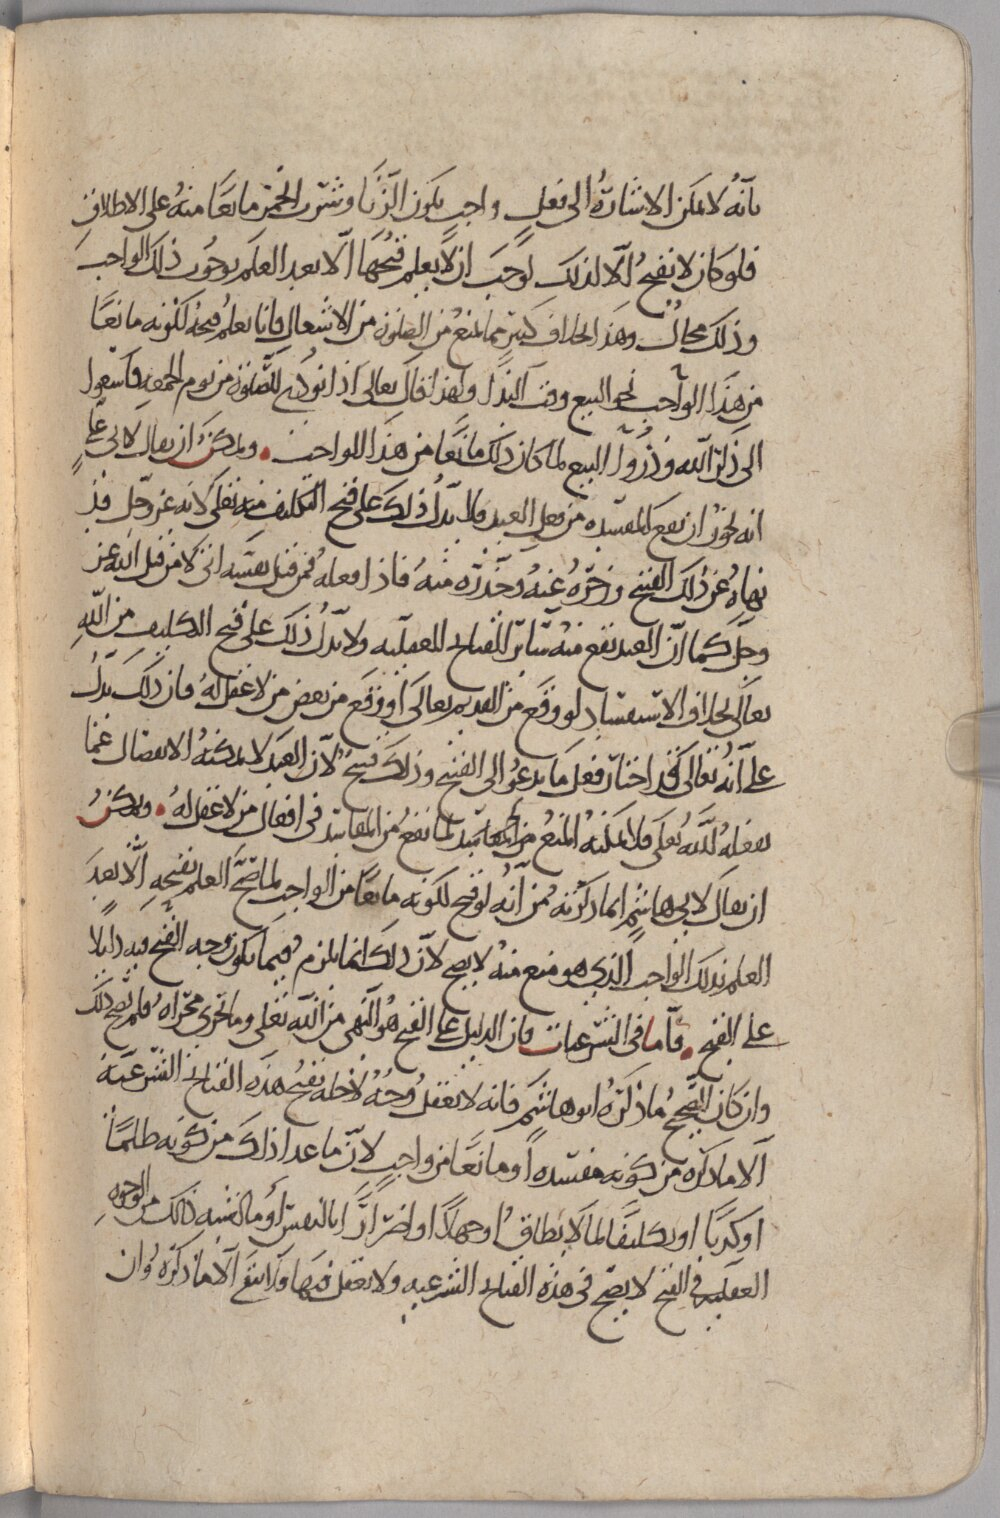 بانه لا يمكن الاشارة الى فعل واجب يكون الزنا وشرب الخمر مانعا منه على الاطلاق
فلو كان لا يقبح الا لذلك لوجب ان لا يعلم قبحها الا بعد العلم بوجوب ذلك الواجب
وذلك محال وهذا بخلاف كثير مما يمنع من الصلوة من الاشغال فانا نعلم قبحه لكونه مانعا
من هذا الواجب نحو البيع وقت النداء ولهذا قال تعالى اذا نودي للصلوة من يوم الجمعة فاسعوا
الى ذكر الله وذروا البيع لما كان ذلك مانعا من هذا الواجب ويمكن ان يقال لابي علي
انه يجوز ان يقع المفسدة من فعل العبد فلا يدل ذلك على قبح التكليف منه تعلى لانه عز وجل قد
نهاه عن ذلك القبيح وزجره عنه وحذره منه فاذا فعله فمن قبل نفسه اتي لا من قبل الله عز
وجل كما ان العبد تقع منه سائر القبائح العقلية ولا يدل ذلك على قبح التكليف من الله
تعالى بخلاف الاستفساد لو وقع من القديم تعالى او وقع من بعض من لا عقل له فان ذلك يدل
على انه تعالى قد اختار فعل ما يدعو الى القبيح وذلك قبيح لان العبد لا يمكنه الانفصال عما
يفعله الله تعلى فلا يمكنه المنع من المفاسد لما يقع من المفاسد في افعال من لا عقل له ويمكن
ان يقال لابي هاشم ان ما ذكرته من انه لو قبح لكونه مانعا من الواجب لما صح العلم بقبحه الا بعد
العلم بذلك الواجب الذي هو منع منه لا يصح لان ذلك انما يلزم فيما يكون وجه القبح فيه دليلا
على القبح فاما في الشرعيات فان الدليل على القبح هو النهي من الله تعلى وما جرى مجراه فلم يصح ذلك
وان كان الصحيح ما ذكره ابو هاشم فانه لا يعقل وجه لاجله تقبح هذه القبائح الشرعية
الا ما ذكره من كونه مفسدة او مانعا من واجب لان ما عدا ذلك من كونه ظلما
او كذبا او تكليفا لما لا يطاق او جهلا او اضرارا بالنفس او ما اشبه ذلك من الوجوه
العقلية في القبح لا يصح في هذه القبائح الشرعية ولا يعقل فيها الا ما ذكره وان